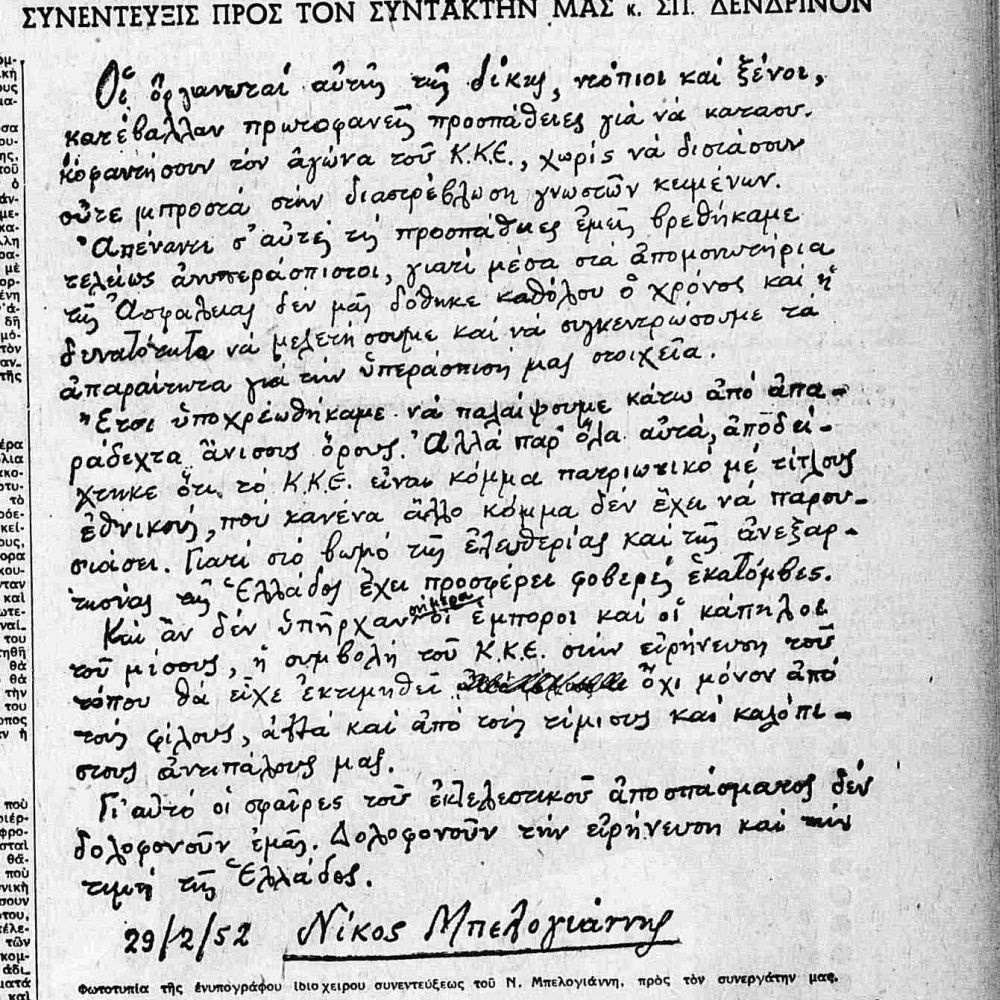 ΣΥΝΕΝΤΕΥΞΙΣ ΠΡΟΣ ΤΟΝ ΣΥΝΤΑΚΤΗΝ ΜΑΣ κ. ΣΠ. ΔΕΝΔΡΙΝΟΝ
Οἱ ὀργανωταί αὐτῆς τῆς δίκης, ντόπιοι καί ξένοι,
κατέβαλλαν πρωτοφανεῖς προσπάθειες γιά νά κατασυ-
κοφαντήσουν τόν ἀγώνα τοῦ Κ.Κ.Ε., χωρίς νά διστάσουν
οὔτε μπροστά στήν διαστρέβλωση γνωστῶν κειμένων.
Ἀπέναντι σ' αὐτές τίς προσπάθειες ἐμεῖς βρεθήκαμε
τελείως ἀνυπεράσπιστοι, γιατί μέσα στά ἀπομονωτήρια
τῆς Ἀσφαλείας δέν μᾶς δόθηκε καθόλου ὁ χρόνος καί ἡ
δυνατότητα νά μελετήσουμε καί νά συγκεντρώσουμε τά
ἀπαραίτητα γιά τήν ὑπεράσπισή μας στοιχεῖα.
Ἔτσι ὑποχρεωθήκαμε νά παλαίψουμε κάτω ἀπό ἀπα-
ράδεχτα ἄνισους ὅρους. Ἀλλά παρ' ὅλα αὐτά, ἀποδεί-
χτηκε ὅτι τό Κ.Κ.Ε. εἶναι κόμμα πατριωτικό μέ τίτλους
ἐθνικούς, πού κανένα ἄλλο κόμμα δέν ἔχει νά παρου-
σιάσει. Γιατί στό βωμό τῆς ἐλευθερίας καί τῆς ἀνεξαρ-
τησίας τῆς Ἑλλάδος ἔχει προσφέρει φοβερές ἑκατόμβες.
Καί ἄν δέν ὑπῆρχαν σήμερα οἱ ἔμποροι καί οἱ κάπηλοι
τοῦ μίσους, ἡ συμβολή τοῦ Κ.Κ.Ε. στήν εἰρήνευση τοῦ
τόπου θά εἶχε ἐκτιμηθεῖ ὄχι μόνον ἀπό
τούς φίλους, ἀλλά καί ἀπό τούς τίμιους καί καλόπι-
στους ἀντιπάλους μας.
Γι' αὐτό οἱ σφαῖρες τοῦ ἐκτελεστικοῦ ἀποσπάσματος δέν
δολοφονοῦν ἐμᾶς. Δολοφονοῦν τήν εἰρήνευση καί τήν
τιμή τῆς Ἑλλάδος.
29/2/52 Νίκος Μπελογιάννης
Φωτοτυπία τῆς ἐνυπογράφου ἰδιοχείρου συνεντεύξεως τοῦ Ν. Μπελογιάννη, πρὸς τὸν συνεργάτην μας.